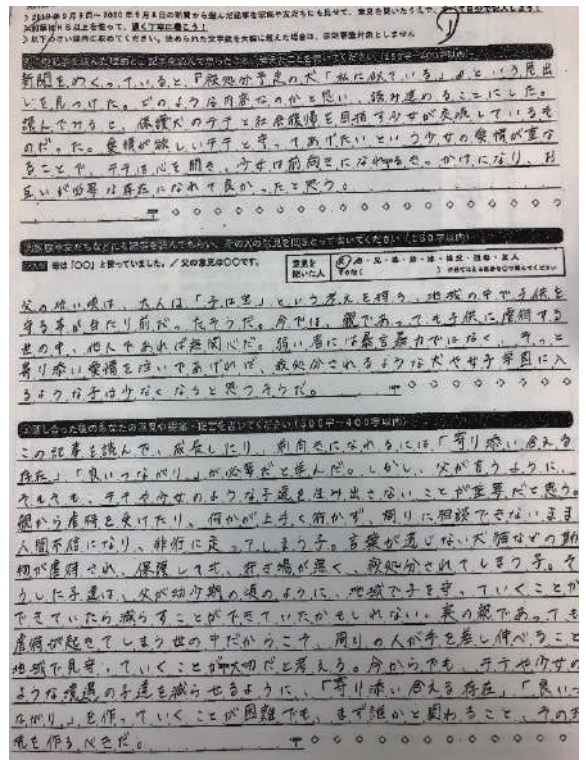 新聞をめくっていると、『殺処分予定の犬「私に似ている」』という見出
しを見つけた。どのような内容なのかと思い、読み進めることにした。
読んでみると、保護犬のテテと社会復帰を目指す少女が交流しているも
のだった。愛情が欲しいテテと守ってあげたいという少女の愛情が重な
ることで、テテは心を開き、少女は前向きになれるきっかけになり、お
互いが必要な存在になれて良かったと思う。
例 母は「〇〇」と言っていました。／父の意見は〇〇です。
意見を
聞いた人
父の幼い頃は、大人は「子は宝」という考えを持ち、地域の中で子供を
守る事が当たり前だったそうだ。今では、親であっても子供に虐待する
世の中、他人であれば無関心だ。弱い者には暴言暴力ではなく、そっと
寄り添い愛情を注いであげれば、殺処分されるような犬や女子学園に入
るような子は少なくなると思うそうだ。
この記事を読んで、成長したり、前向きになれるには「寄り添い合える
存在」「良いつながり」が必要だと学んだ。しかし、父が言うように、
そもそも、テテや少女のような子達を生み出さないことが重要だと思う。
親から虐待を受けたり、何かが上手く行かず、周りに相談できないまま
人間不信になり、非行に走ってしまう子。言葉が通じない犬猫などの動
物が虐待され、保護しても、行き場が無く、殺処分されてしまう子。そ
うした子達は、父が幼少期の頃のように、地域で子を守っていくことが
できていたら減らすことができていたかもしれない。実の親であっても
虐待が起きてしまう世の中だからこそ、周りの人が手を差し伸べること
地域で見守っていくことが大切だと考える。今からでも、テテや少女の
ような境遇の子達を減らせるように、「寄り添い合える存在」「良いつ
ながり」を作っていくことが困難でも、まず誰かと関わること、その
境を作るべきだ。